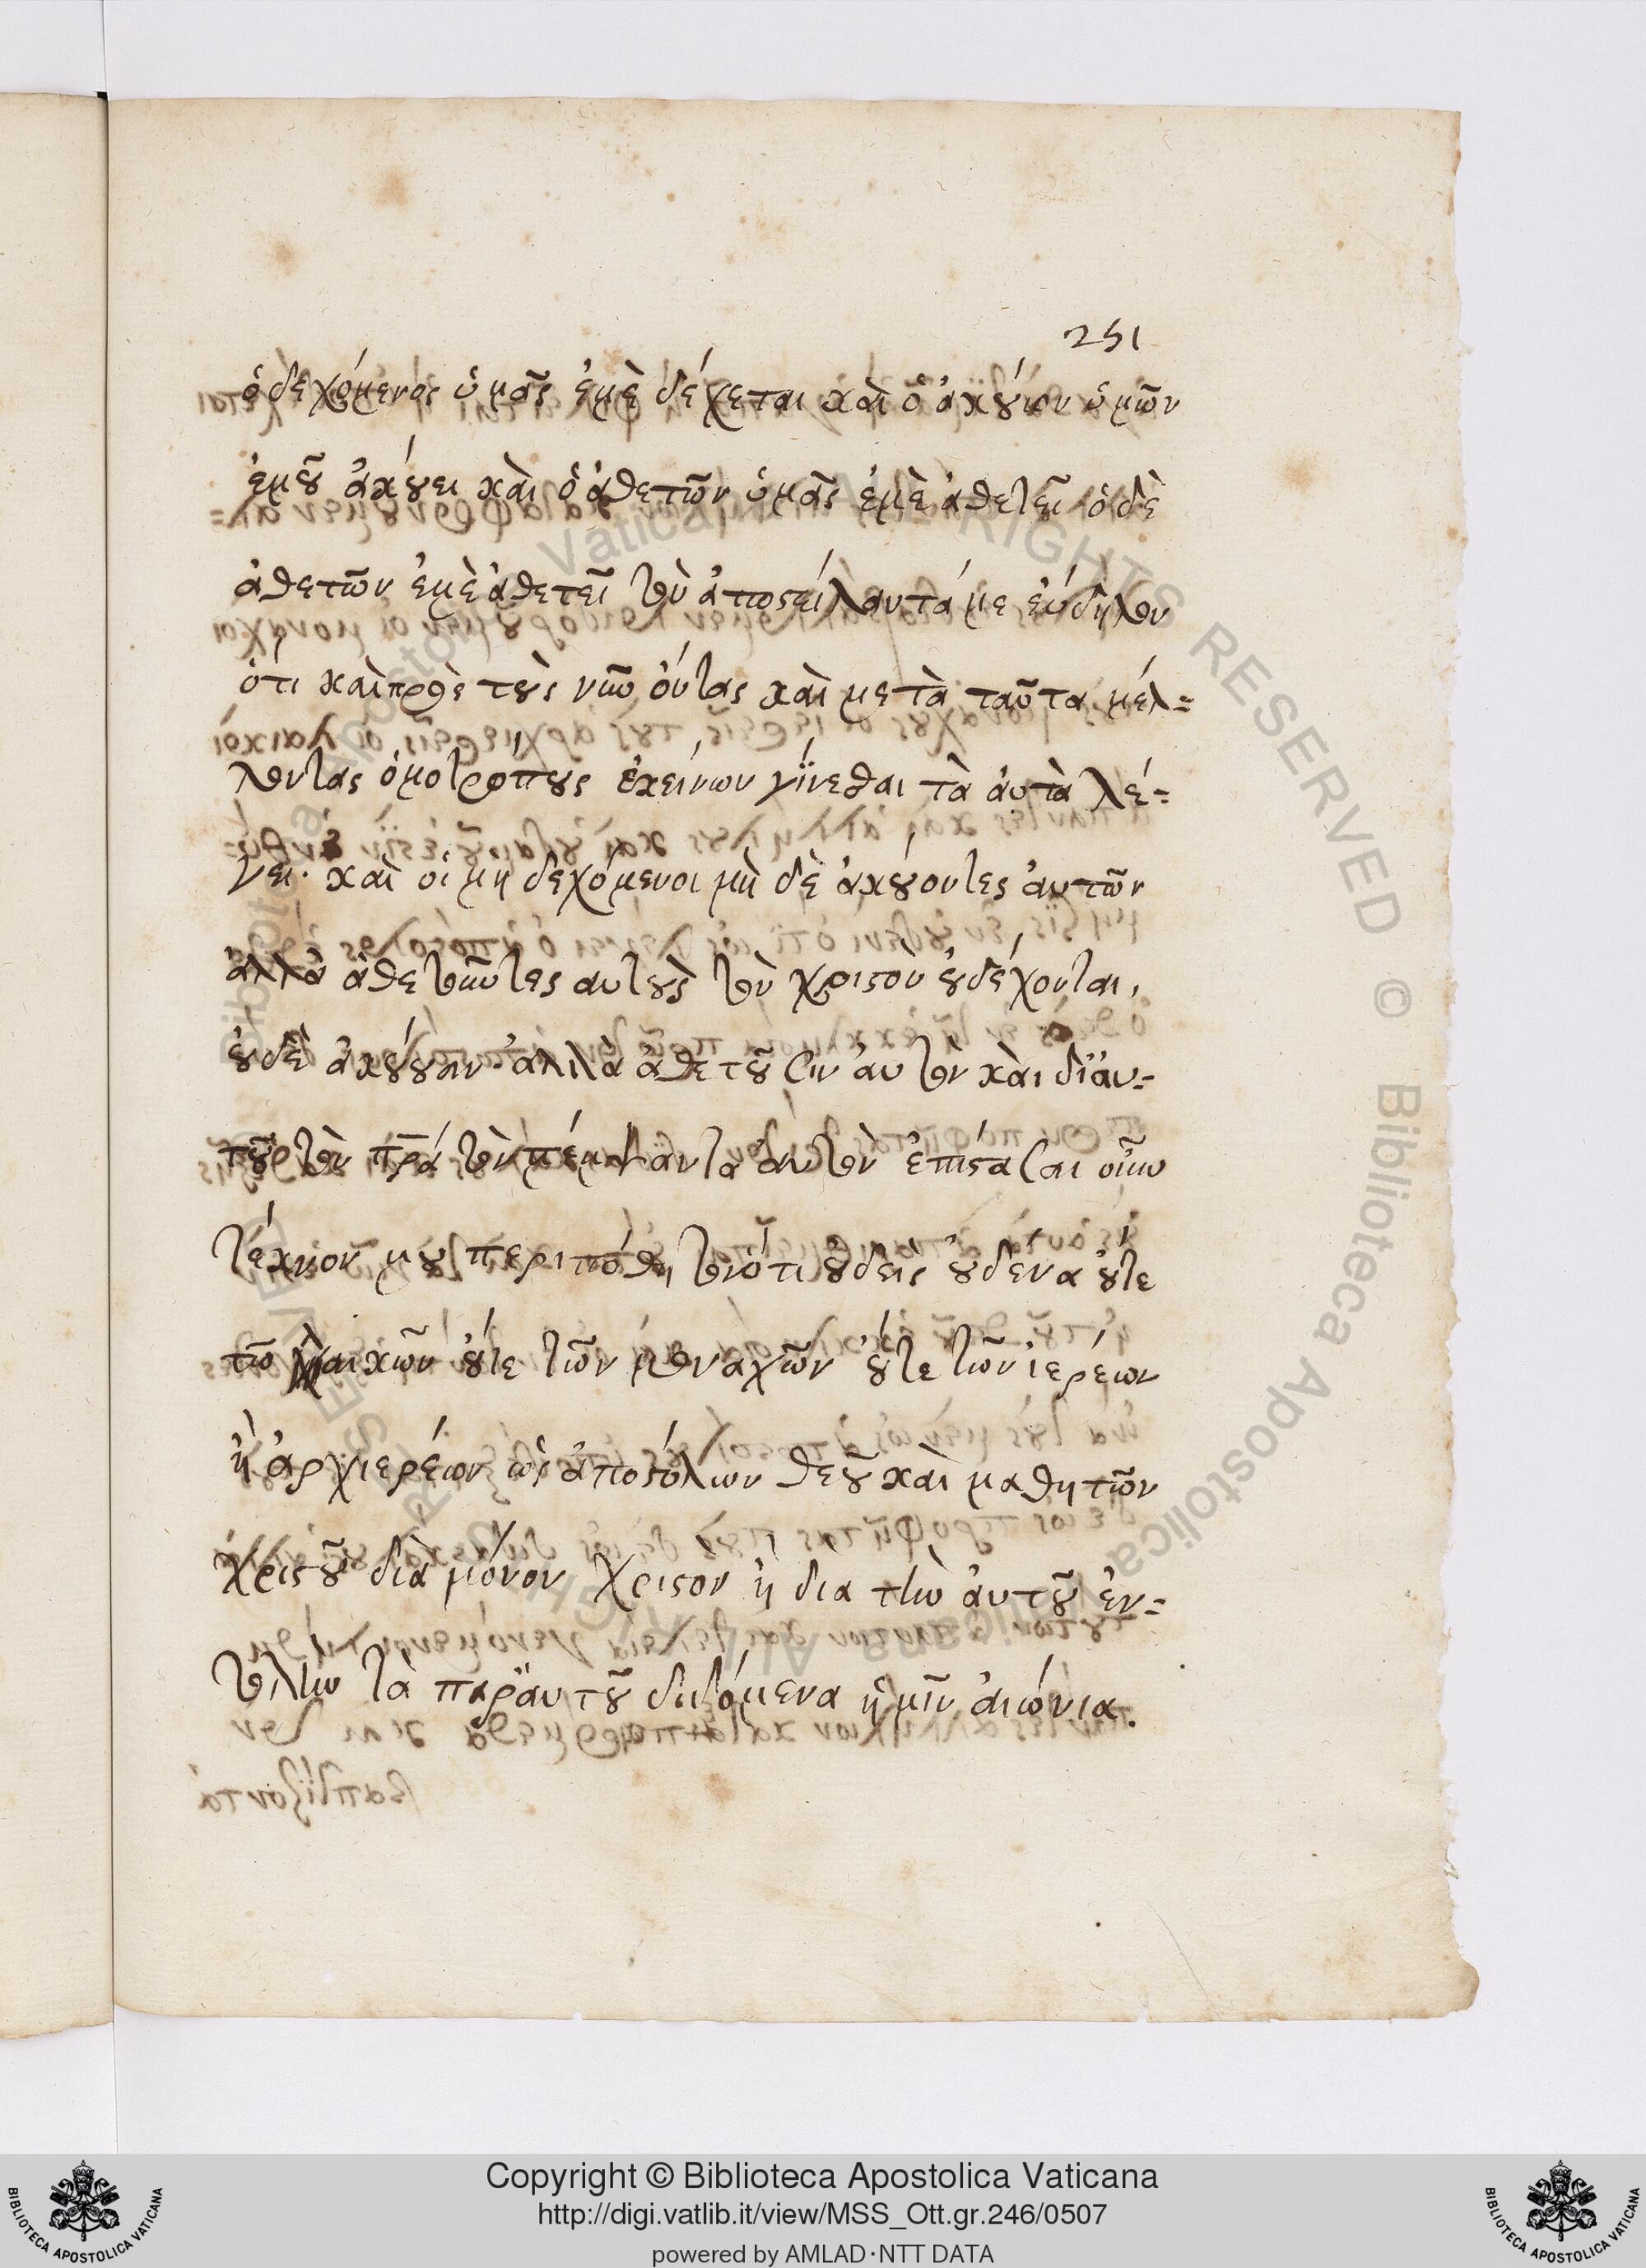 251
ὁ δεχόμενος ὑμᾶς ἐμὲ δέχεται καὶ ὁ ἀκούων ὑμῶν
ἐμοῦ ἀκούει καὶ ὁ ἀθετῶν ὑμᾶς ἐμὲ ἀθετεῖ ὁ δὲ
ἀθετῶν ἐμὲ ἀθετεῖ τὸν ἀποστείλαντά με εὔδηλον
ὅτι καὶ πρὸς τοὺς νῦν ὄντας καὶ μετὰ ταῦτα μέλ=
λοντας ὁμοτρόπους ἐκείνων γίνεσθαι τὰ αὐτὰ λέ=
γει· καὶ οἱ μὴ δεχόμενοι μὴ δὲ ἀκούοντες αὐτῶν
ἀλλὰ ἀθετοῦντες αυτοὺς τὸν χριστὸν οὐ δέχονται,
οὐδὲ ἀκούουσιν· ἀλλὰ ἀθετοῦσιν αὐτὸν καὶ δι' αυ=
τοῦ τὸν πρ̅α τὸν πέμψαντα αὐτὸν ἐπίστασαι οὖν
τέκνον μου περιπόθητον ὅτι οὐδεὶς οὐδένα οὔτε
τῶν λαικῶν οὔτε τῶν μοναχῶν οὔτε τῶν ἱερέων
ἢ ἀρχιερέων ὡς ἀποστόλων θεοῦ καὶ μαθητῶν
χριστοῦ διὰ μόνον χριστον ἢ δια τὴν αὐτοῦ ἐν=
τολὴν τὰ παρ' αυτοῦ διδόμενα ἡμῖν αἰώνια.
Copyright © Biblioteca Apostolica Vaticana
http://digi.vatlib.it/view/MSS_Ott.gr.246/0507
powered by AMLAD·NTT DATA
BIBLIOTECA APOSTOLICA VATICANA
BIBLIOTECA APOSTOLICA VATICANA